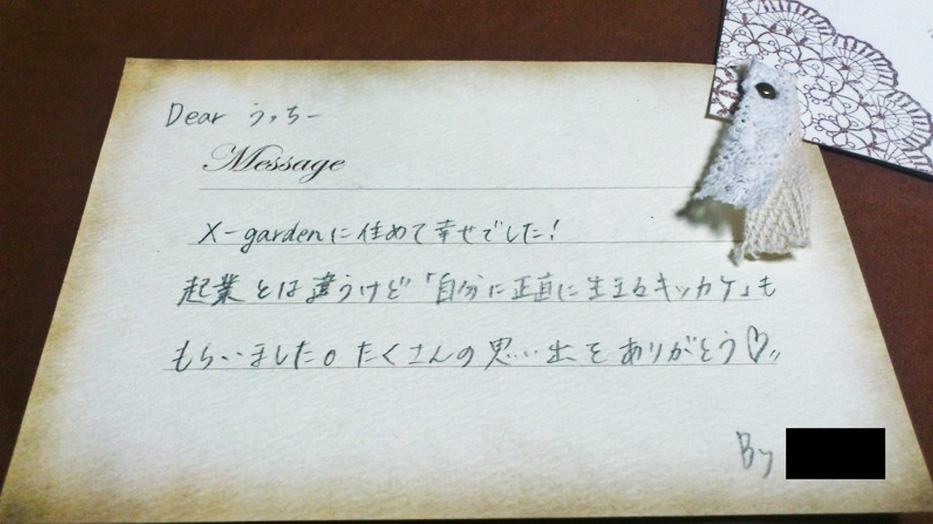 Dear うっちー
Message
X-gardenに住めて幸せでした!
起業とは違うけど「自分に正直に生きるキッカケ」も
もらいました。たくさんの思い出をありがとう♡〃
By